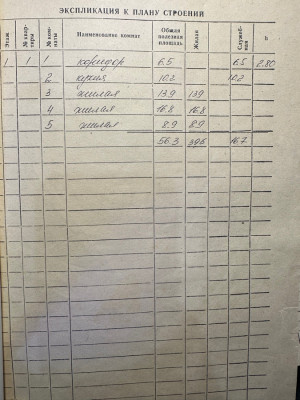 ЭКСПЛИКАЦИЯ К ПЛАНУ СТРОЕНИЙ
Этаж № квартиры № комнаты Наименование комнат Общая полезная площадь Жилая Служебная h
1 1 1 коридор 6.5 6.5 2.80
2 кухня 10.2 10.2
3 жилая 13.9 13.9
4 жилая 16.8 16.8
5 жилая 8.9 8.9
56.3 39.6 16.7